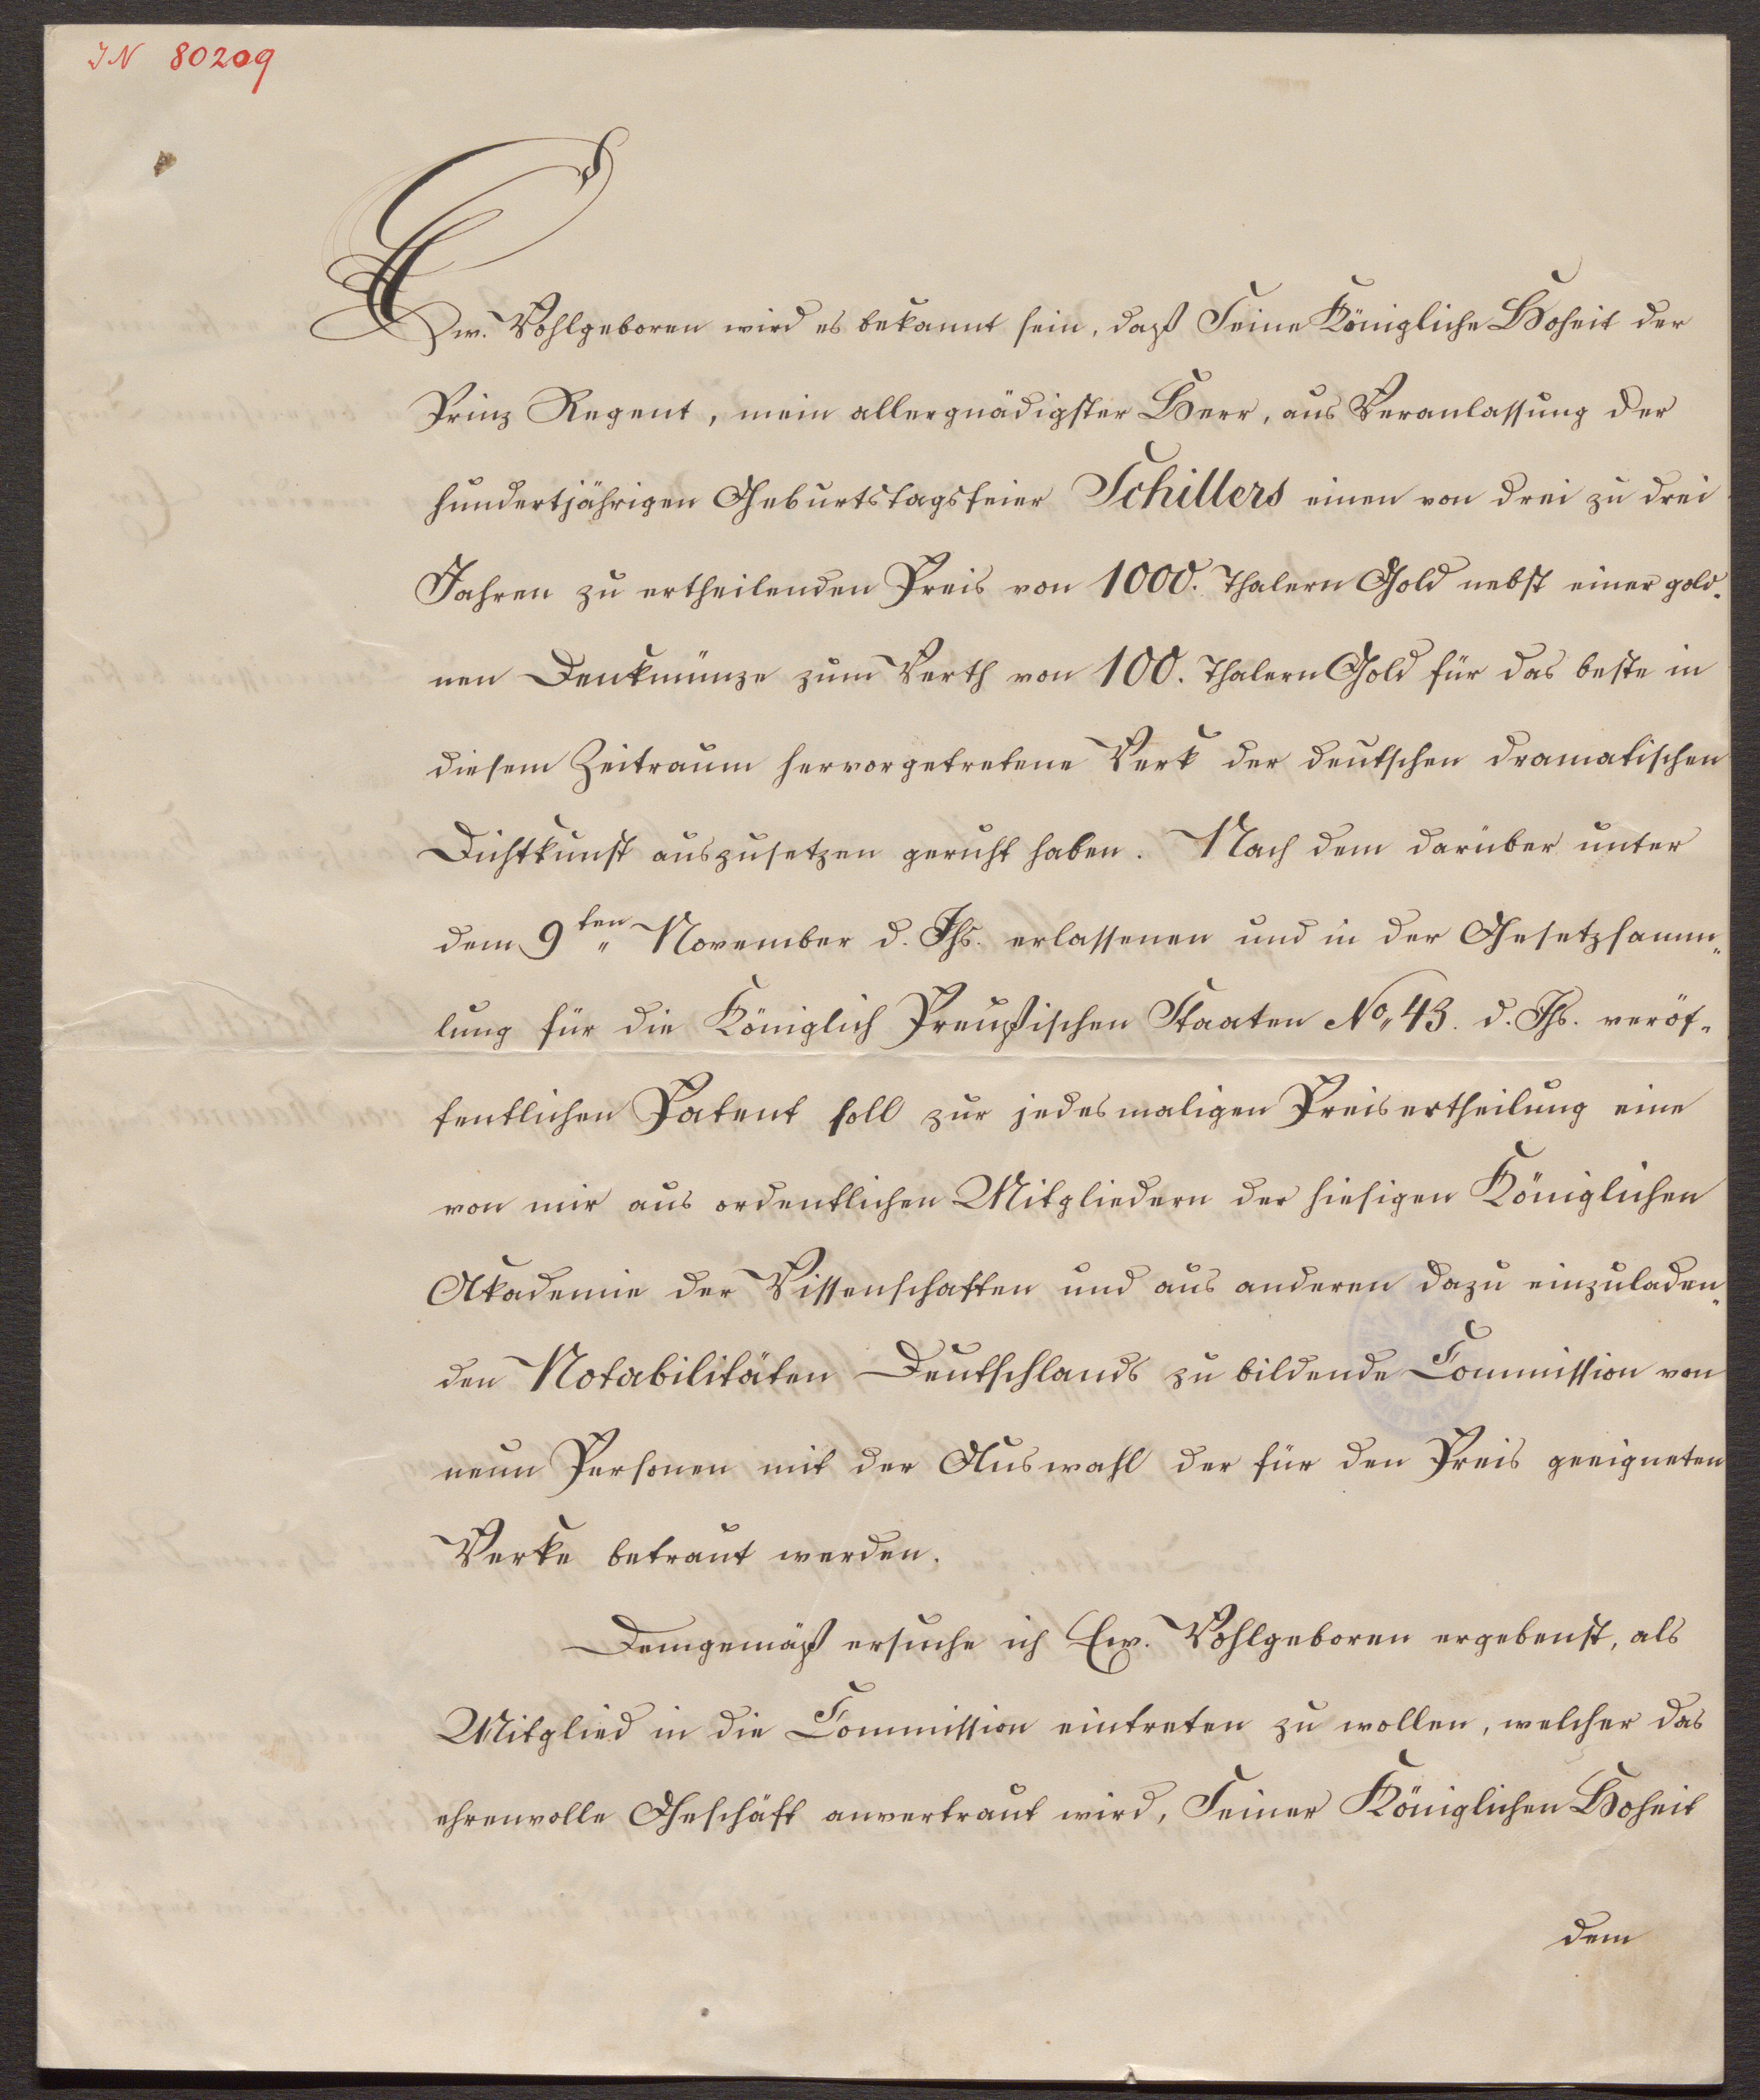 IN 80209
Ew. Wohlgeboren wird es bekannt sein, daß Seine Königliche Hoheit der
Prinz Regent, mein allergnädigster Herr, aus Veranlassung der
hundertjährigen Geburtstagsfeier Schillers einen von drei zu drei
Jahren zu ertheilenden Preis von 1000. Thalern Gold nebst einer gold-
nen Denkmünze zum Werth von 100. Thalern Gold für das beste in
diesem Zeitraum hervorgetretene Werk der deutschen dramatischen
Dichtkunst auszusetzen geruht haben. Nach dem darüber unter
dem 9ten November d. Js. erlassenen und in der Gesetzsamm-
lung für die Königlich Preußischen Staaten No 43. d. Js. veröf-
fentlichen Patent soll zur jedesmaligen Preisertheilung eine
von mir aus ordentlichen Mitgliedern der hiesigen Königlichen
Akademie der Wissenschaften und aus anderen dazu einzuladen-
den Notabilitäten Deutschlands zu bildende Commission von
neun Personen mit der Auswahl der für den Preis geeigneten
Werke betraut werden.
Demgemäß ersuche ich Ew. Wohlgeboren ergebenst, als
Mitglied in die Commission eintreten zu wollen, welcher das
ehrenvolle Geschäft anvertraut wird, Seiner Königlichen Hoheit
dem